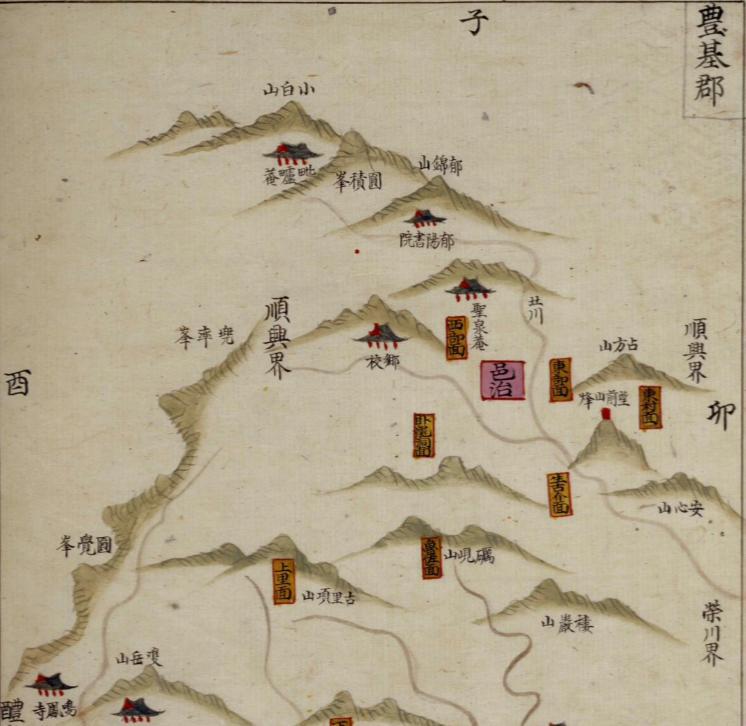 豊基郡
子
小白山
毗盧菴
圓積峯
郁錦山
郁陽書院
聖泉菴
北川
順興界
順興界
兜率峯
鄕校
西部面
邑治
東部面
占方山
東村面
堂前山烽
卯
酉
臥龍洞面
生古介面
安心山
圓覺峯
上里面
古里項山
魯佐面
礪峴山
榮川界
樓巖山
雙岳山
鳴鳳寺
醴
下